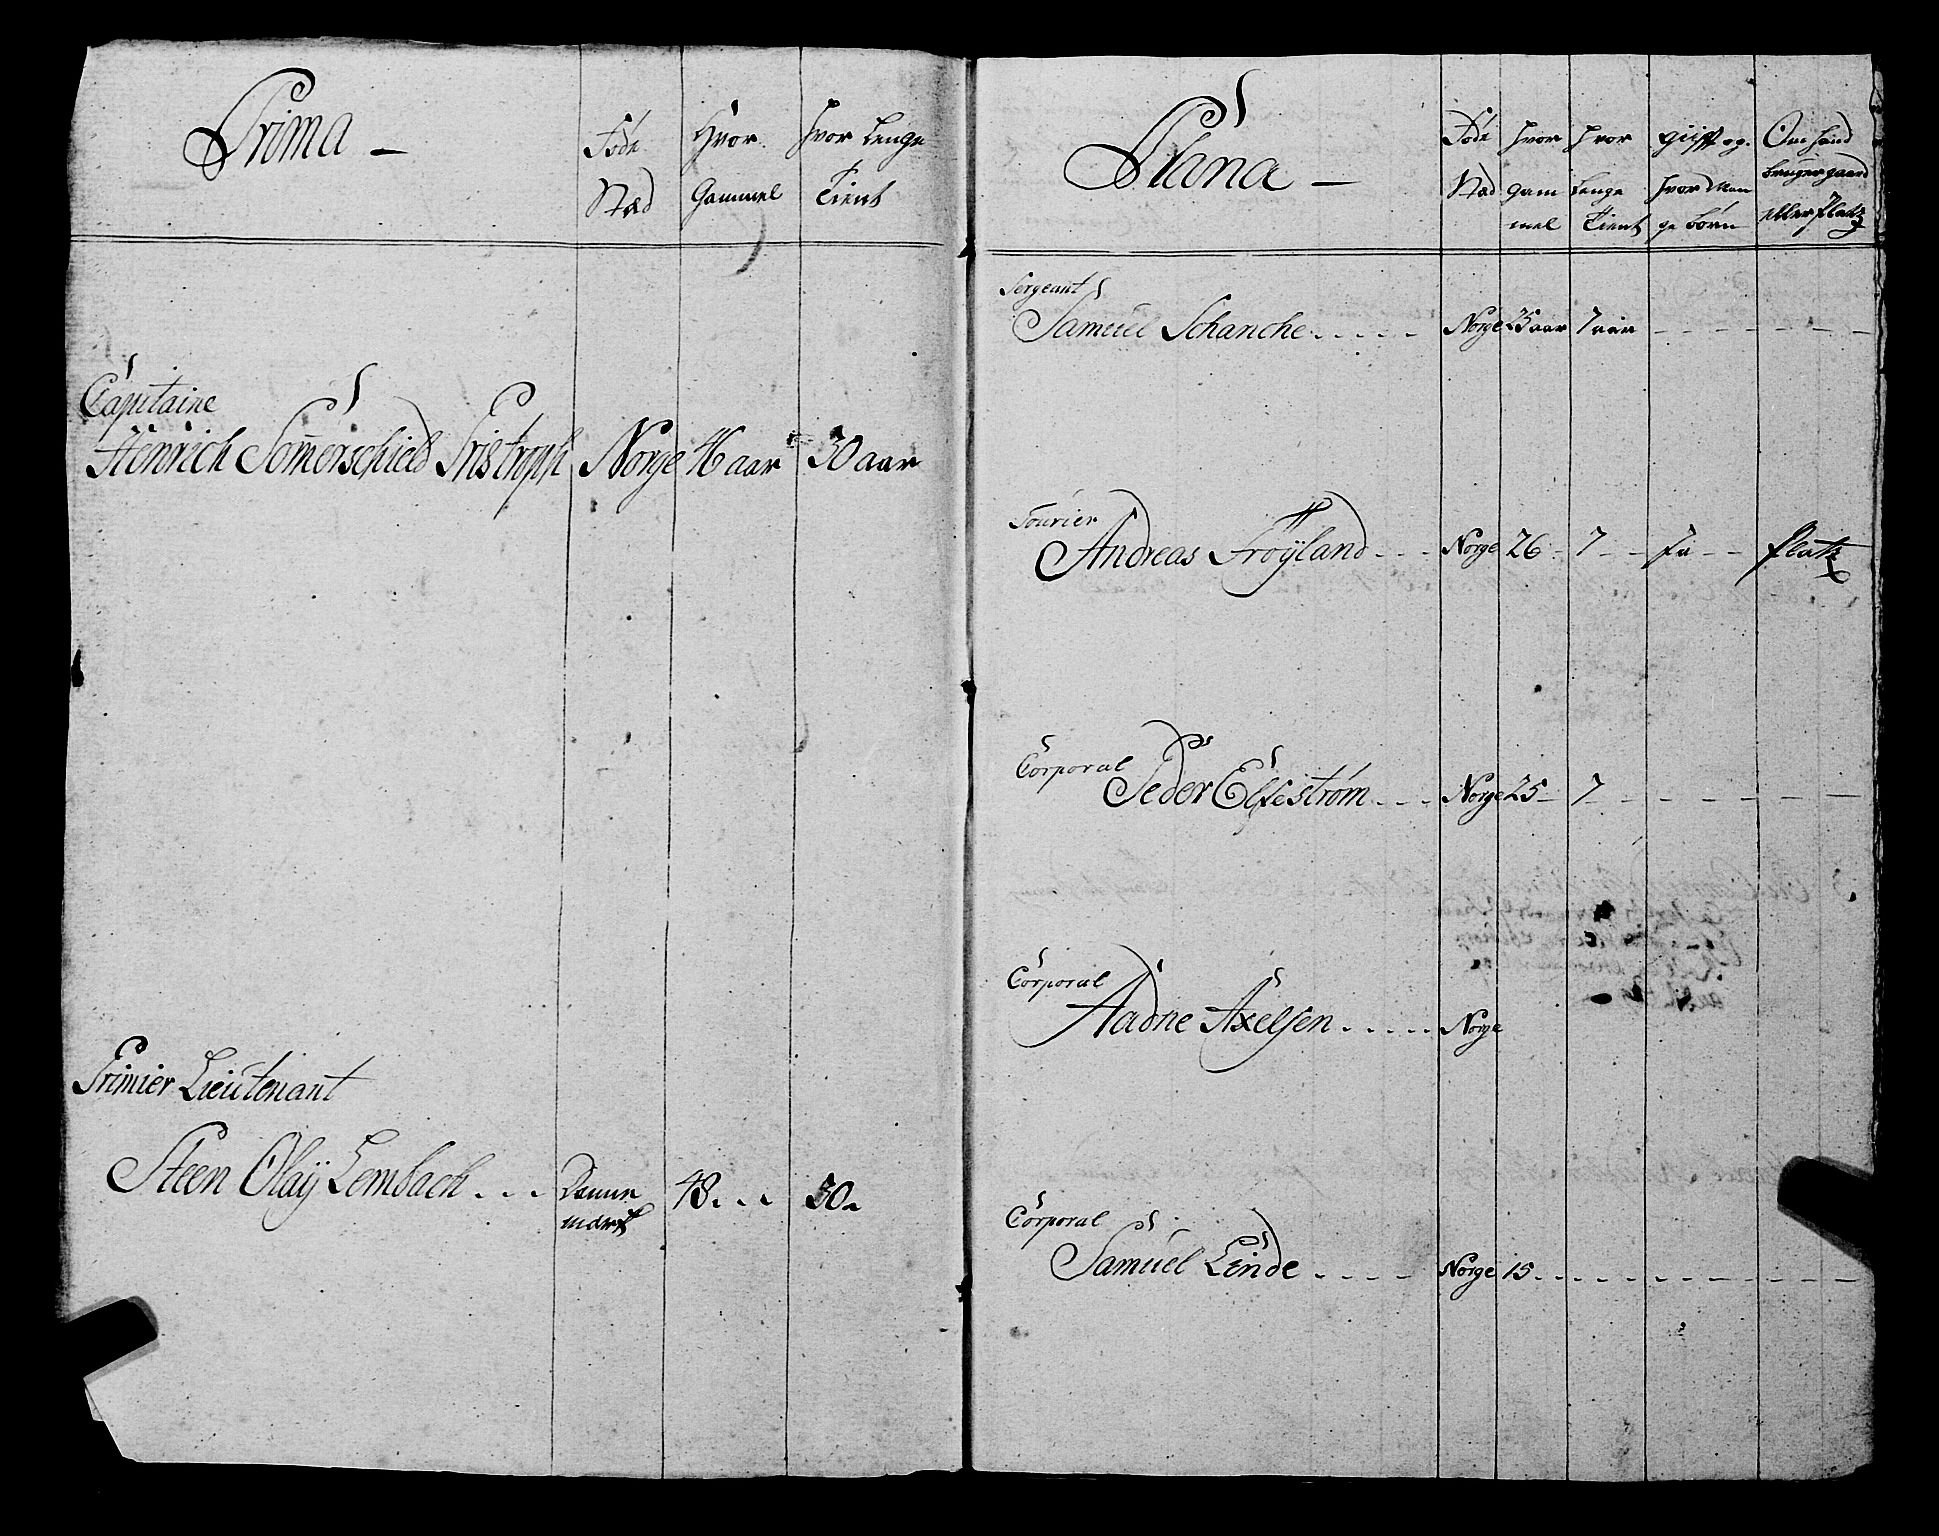 Prima —
Føde Stæd
Hvor Gammel
hvor Lenge Tient
Capitaine
Henrich Somerschield Pristroph Norge 46 aar 30 aar
Primier Lieutenant
Steen Olaÿ Lembach . . . Danne mark 48. . . 30.
Plana —
Føde Stæd
hvor gam mel
hvor Lenge Tient
gift og hvor Man ge børn
Om hand bruger gaard eller platz
Sergeant
Samuel Schanche . . . . . Norge 25 aar 7 aar - - - - - -
Fourier
Andreas Frøÿland . . . Norge 26 - 7 - - Ja - - platz
Corporal
Peder Elfestrøm . . . Norge 25 - 7 - - - - - -
Corporal
Aadne Axelsen . . . . . Norge
Corporal
Samuel Linde . . . . Norge 15 . . . . . - - - - - -